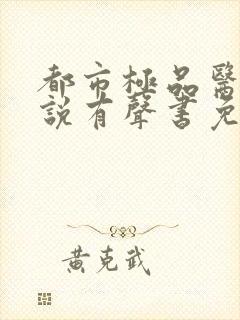 都市極品醫
說有聲書免
黃克武